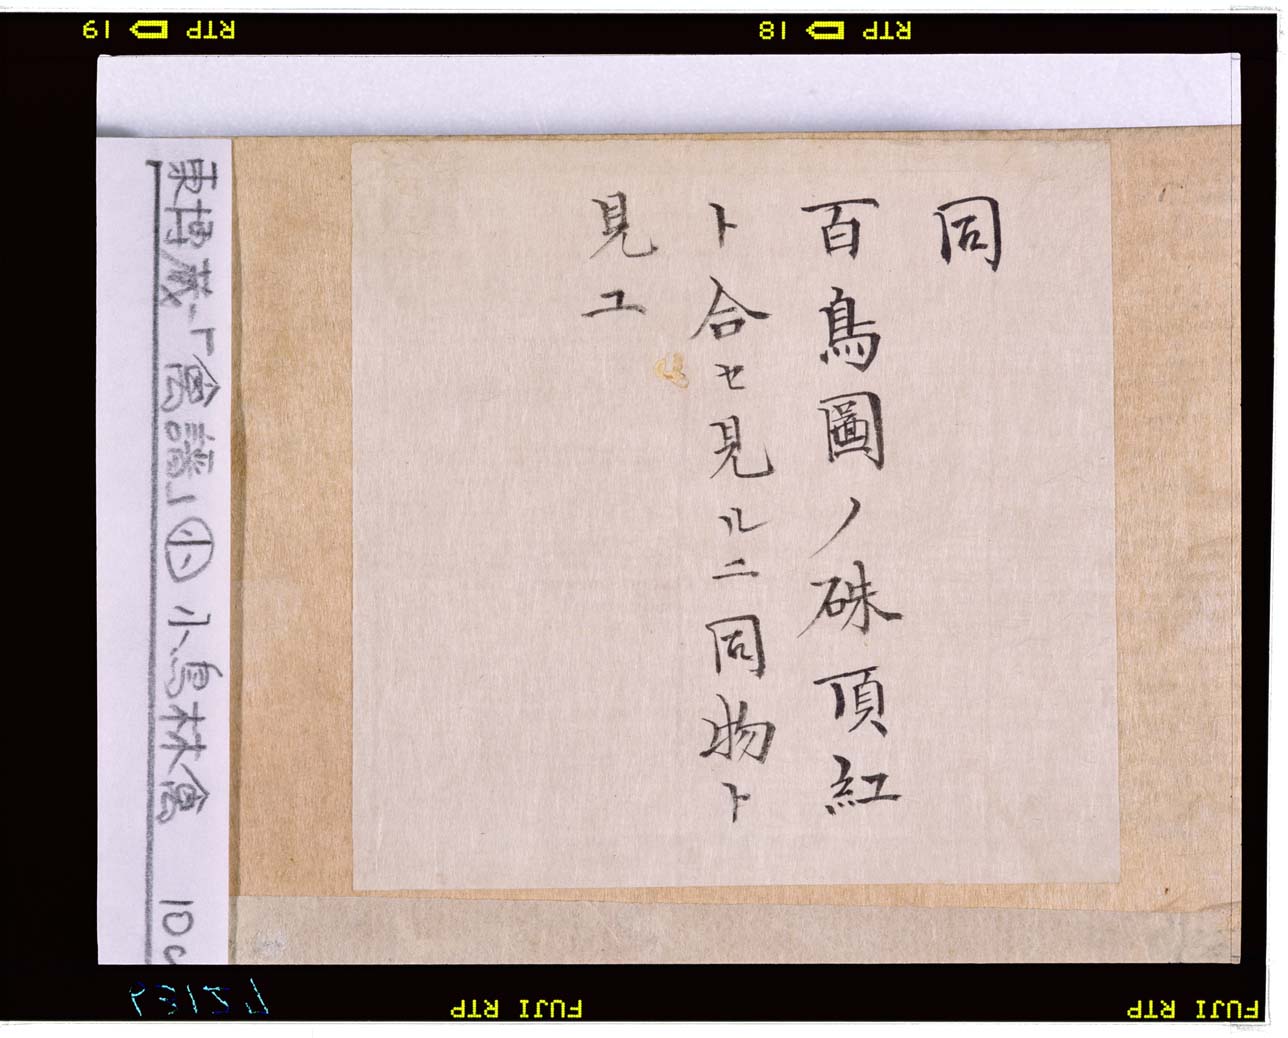 同
百鳥圖ノ硃頂紅
ト合セ見ルニ同物ト
見ユ
東博蔵「禽譜」㊙小鳥林禽 10c
RTP 19
RTP 18
FUJI RTP
FUJI RTP